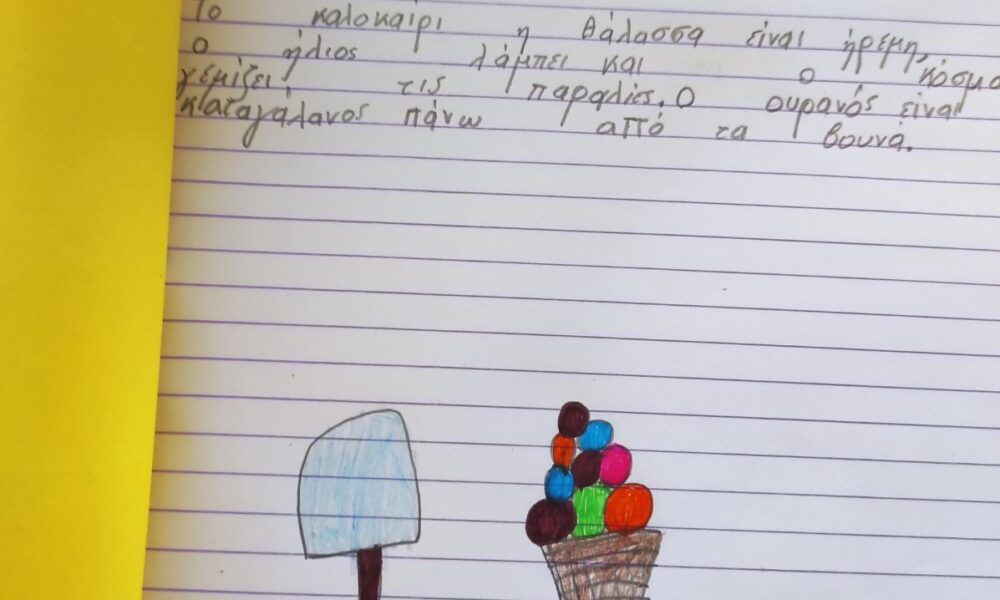 Το καλοκαίρι η θάλασσα είναι ήρεμη,
ο ήλιος λάμπει και ο κόσμο
γεμίζει τις παραλίες. Ο ουρανός είναι
καταγάλανος πάνω από τα βουνά.